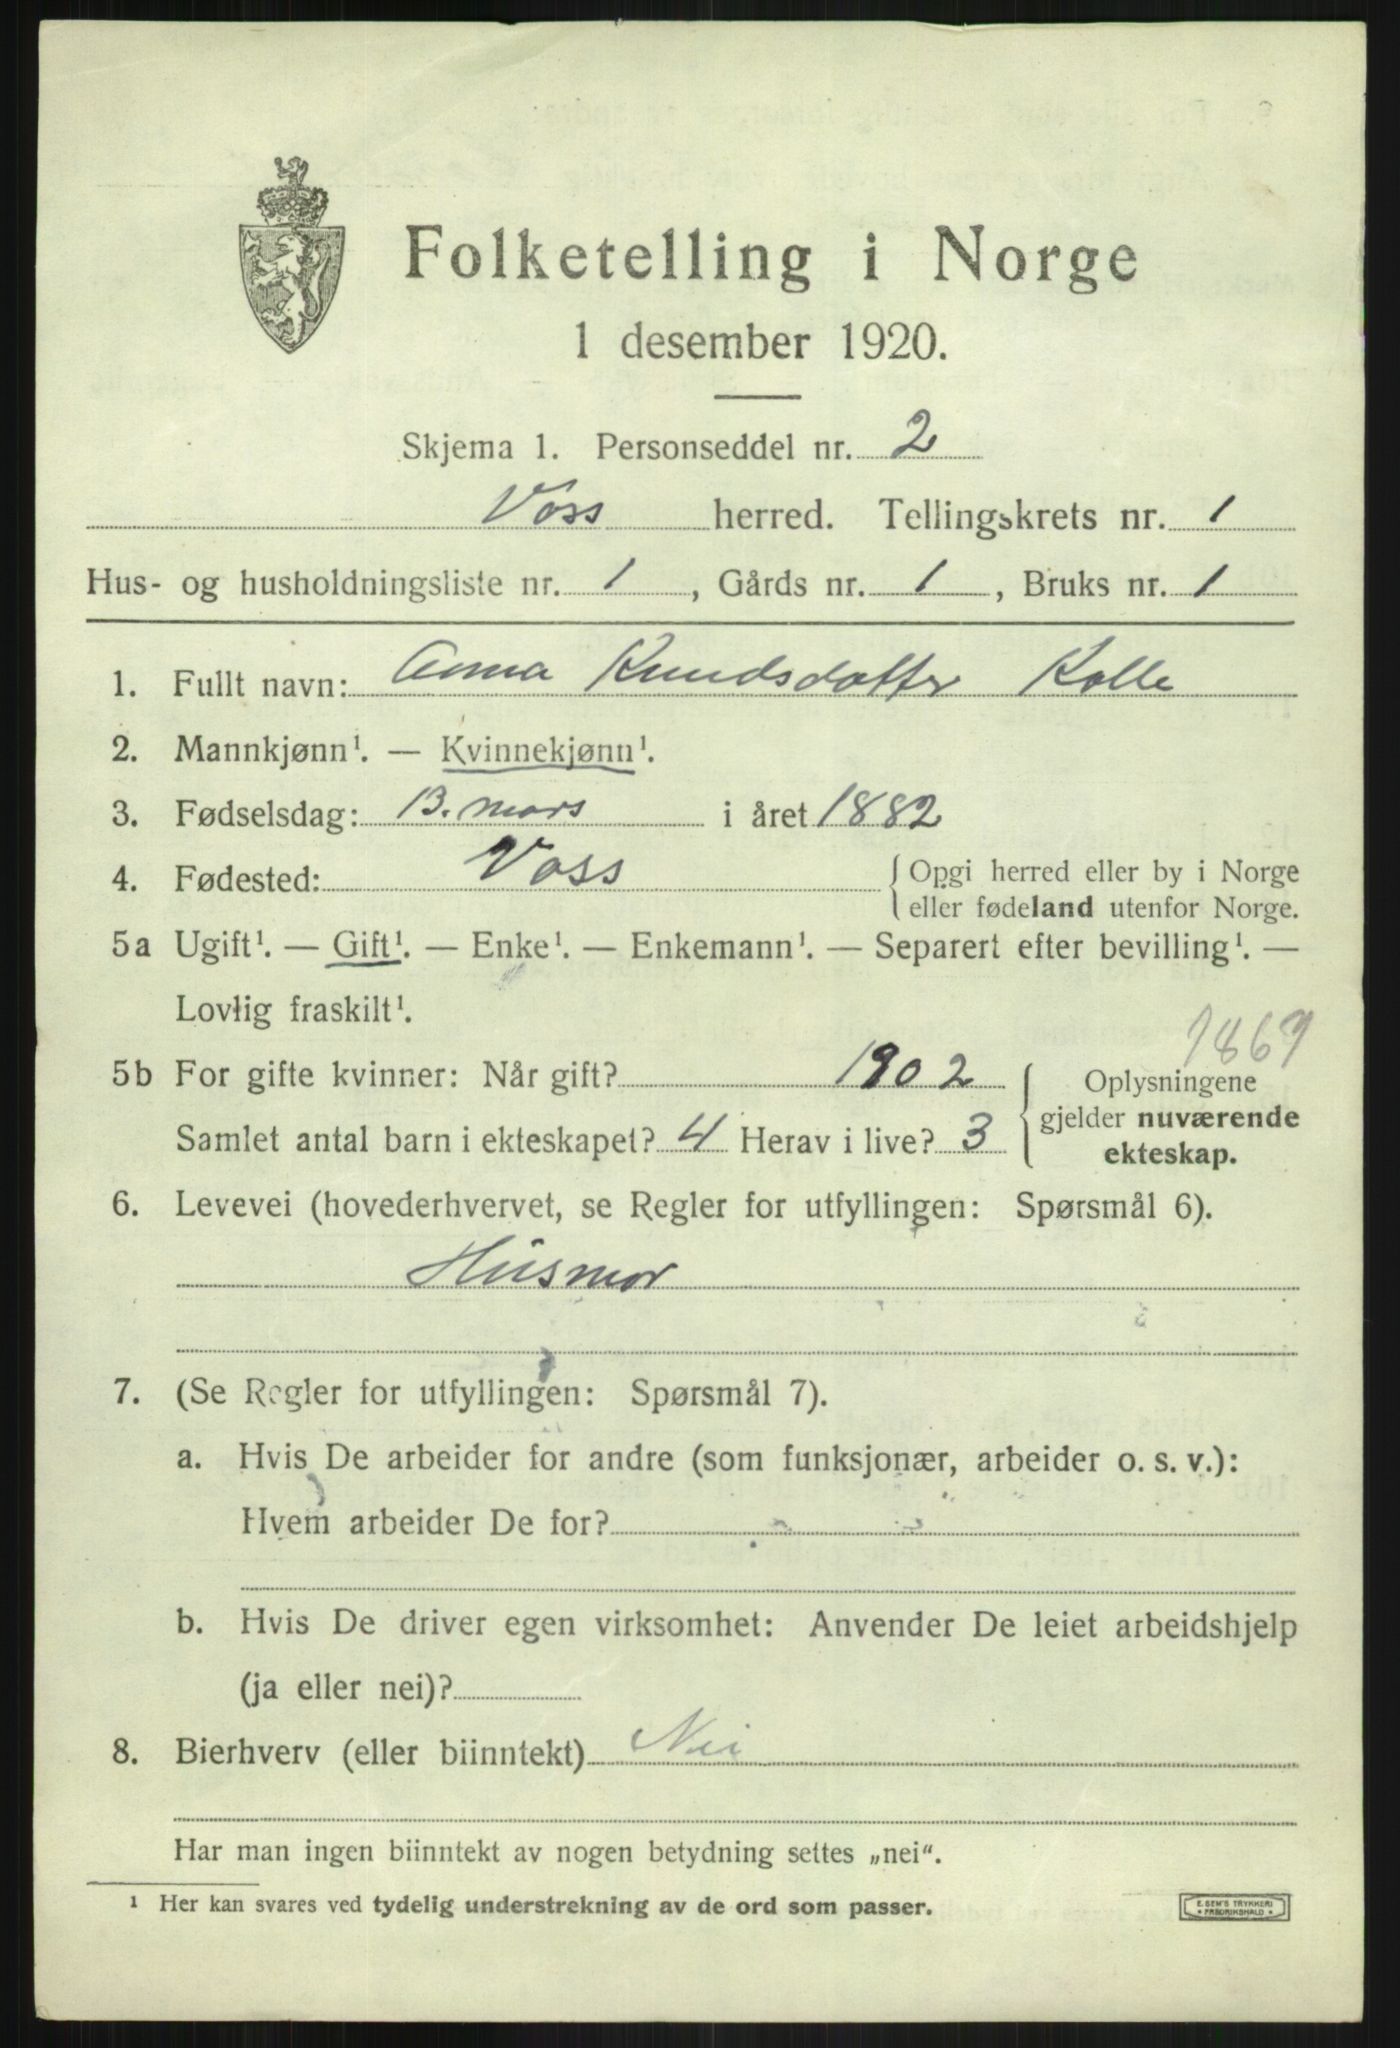 Folketelling i Norge
1 desember 1920.
Skjema 1. Personseddel nr. 2
Voss herred. Tellingskrets nr. 1
Hus- og husholdningsliste nr. 1, Gårds nr. 1, Bruks nr. 1
1. Fullt navn: Anna Knudsdatter Kolle
2. Mannkjønn¹. — Kvinnekjønn¹.
3. Fødselsdag: 13. mars i året 1882
4. Fødested: Voss { Opgi herred eller by i Norge
eller fødeland utenfor Norge.
5a Ugift¹. — Gift¹. — Enke¹. — Enkemann¹. — Separert efter bevilling¹. —
Lovlig fraskilt¹.
1869
5b For gifte kvinner: Når gift? 1902 { Oplysningene
gjelder nuværende
Samlet antal barn i ekteskapet? 4 Herav i live? 3
ekteskap.
6. Levevei (hovederhvervet, se Regler for utfyllingen: Spørsmål 6).
Husmor
7. (Se Regler for utfyllingen: Spørsmål 7).
a. Hvis De arbeider for andre (som funksjonær, arbeider o. s. v.):
Hvem arbeider De for?
b. Hvis De driver egen virksomhet: Anvender De leiet arbeidshjelp
(ja eller nei)?
8. Bierhverv (eller biinntekt) Nei
Har man ingen biinntekt av nogen betydning settes „nei“.
¹ Her kan svares ved tydelig understrekning av de ord som passer.
E. SEM'S TRYKKERI
FREDRIKSHALD